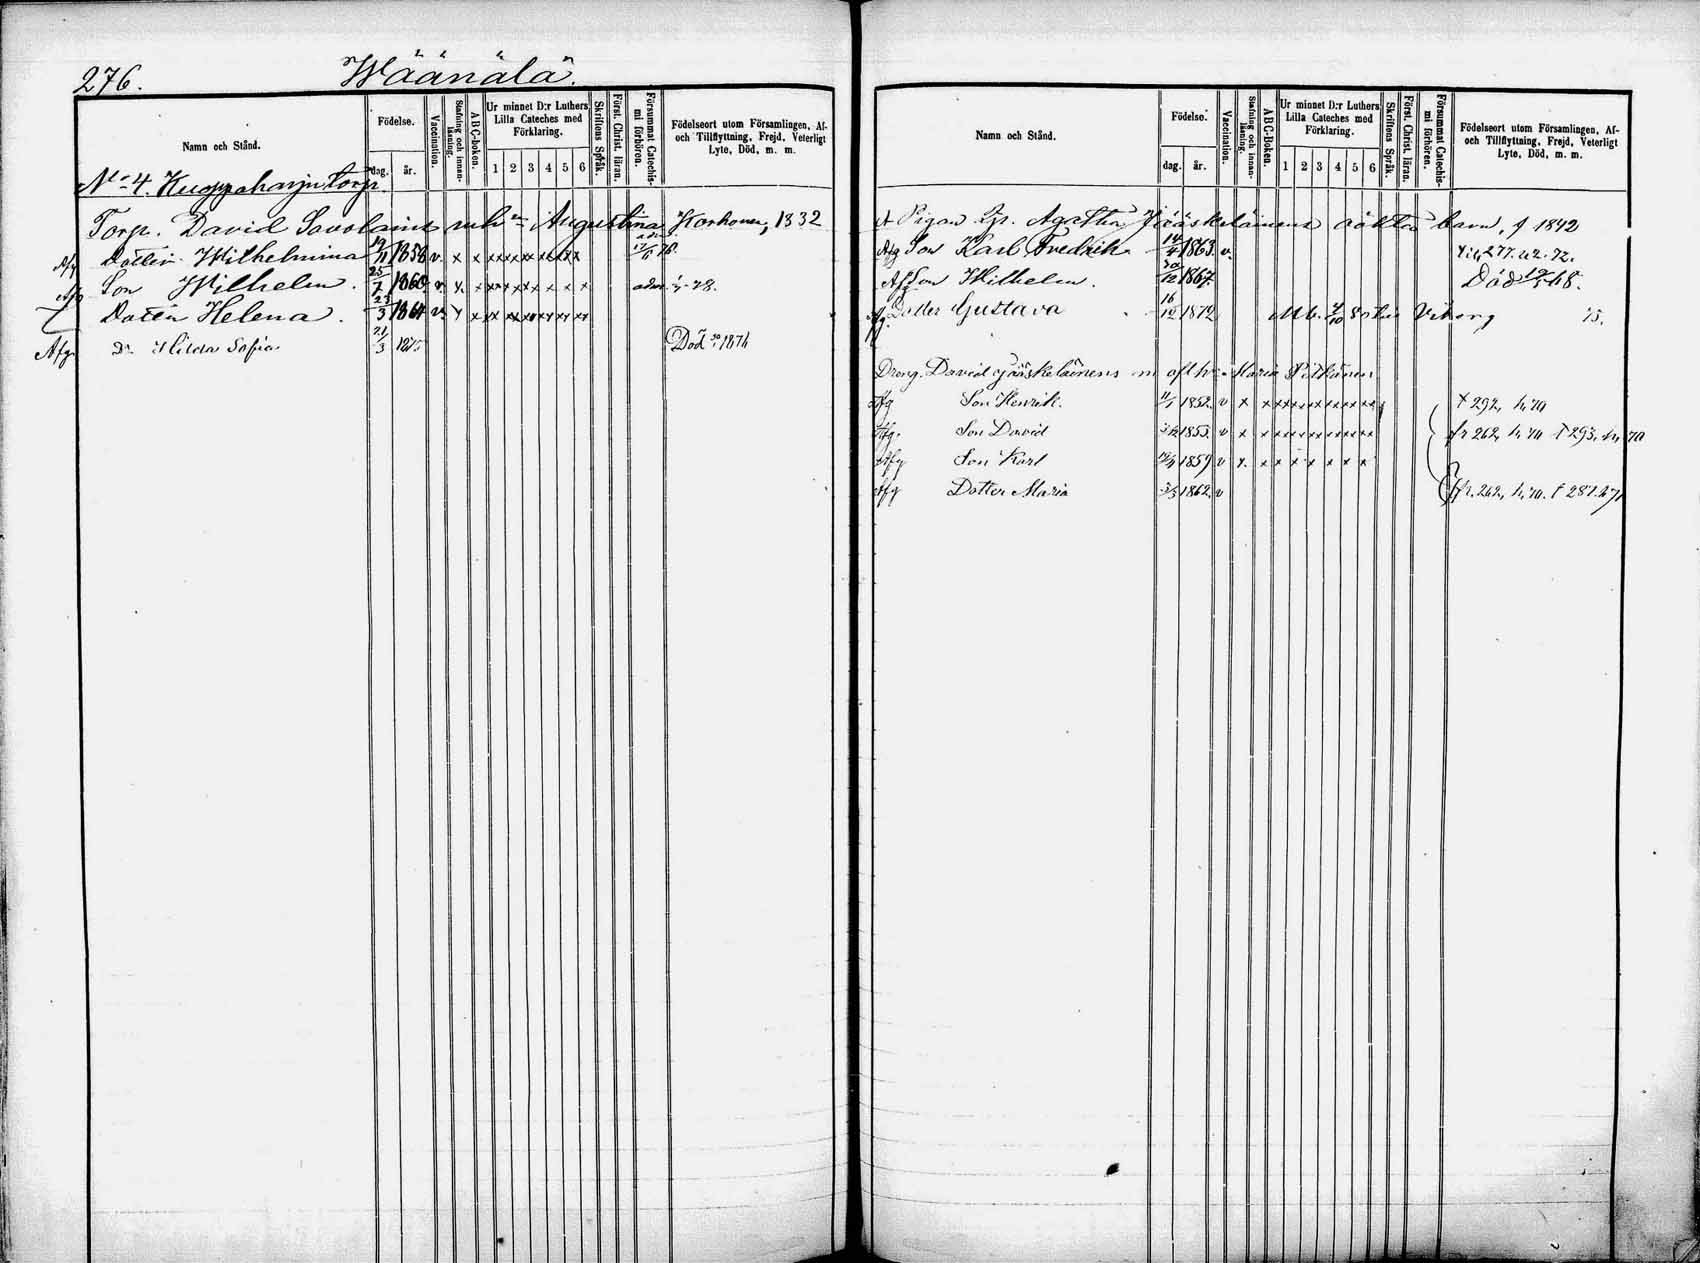 276. Wäänälä.
Namn och Stånd. Födelse. dag. år. Vaccination. Stafning och innanläsning. ABC-boken. Ur minnet D:r Luthers Lilla Cateches med Förklaring. 1 2 3 4 5 6 Skriftens Språk. Först. Christ. läran. Försummat Catechismi förhören. Födelseort utom Församlingen, Af- och Tillflyttning, Frejd, Veterligt Lyte, Död, m. m.
No 4. Kuppaharju torp
Torp. David Savolains enka Augustina Korhonen, 1832
Afg Dotter Wilhelmina 19/11 1858 v x x xxxxxxxxxx
Afg Son Wilhelm. 25/7 1860 v x x x x x x x x x adm. 78.
Dotter Helena. 23/3 1864 v x x x x x x x x
Afg Dr Hilda Sofia 21/3 1875 Död 1876
Namn och Stånd. Födelse. dag. år. Vaccination. Stafning och innanläsning. ABC-Boken. Ur minnet D:r Luthers Lilla Cateches med Förklaring. 1 2 3 4 5 6 Skriftens Språk. Först. Christ. läran. Försummat Catechismi förhören. Födelseort utom Församlingen, Af- och Tillflyttning, Frejd, Veterligt Lyte, Död, m. m.
Pigan Agatha Jääskeläinens oäkta barn, f 1842
Afg Son Karl Fredrik 14/4 1863. v. 277. 72.
Afg Son Wilhelm. 30/12 1867. Död 68.
Afg. Dotter Gustava 16/12 1872 Mb. 4/10 80 till Viborg 15.
Dreng. David Jääskeläinens m afl h. Maria Pitkänen
Afg Son Henrik. 11/1 1852. v x x xxxxxxxxxx f 292, h, 70
Afg. Son David 1855. v x x x x x x x x x x fr 262, h, 70 f 293, h, 70
Afg Son Karl 1859 v x. x x x x x x x
Afg Dotter Maria 3/3 1862. v fr. 262, h, 70. f 287. 67,